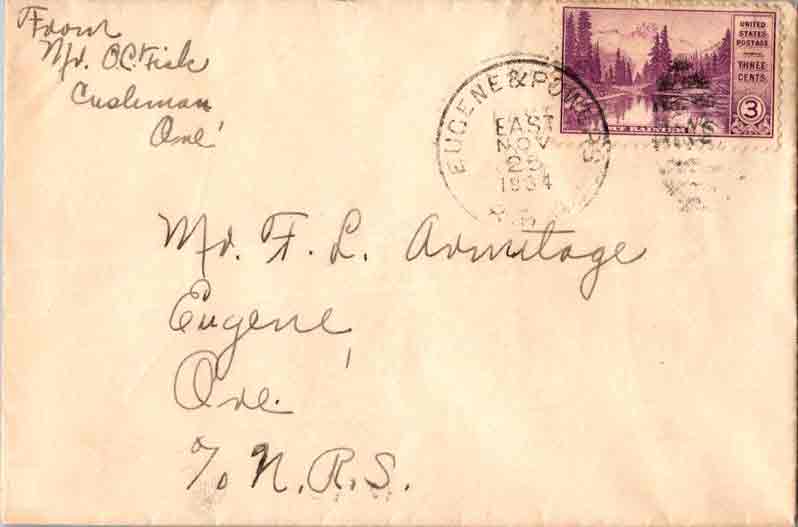 From
Mr. O.C. Fisk
Cushman
Ore
UNITED
STATES
POSTAGE
THREE
CENTS
3
MT RAINIER
EUGENE & POWERS
EAST
NOV
25
1934
R.P.O.
Mr. F. L. Armitage
Eugene,
Ore.
% N.R.S.